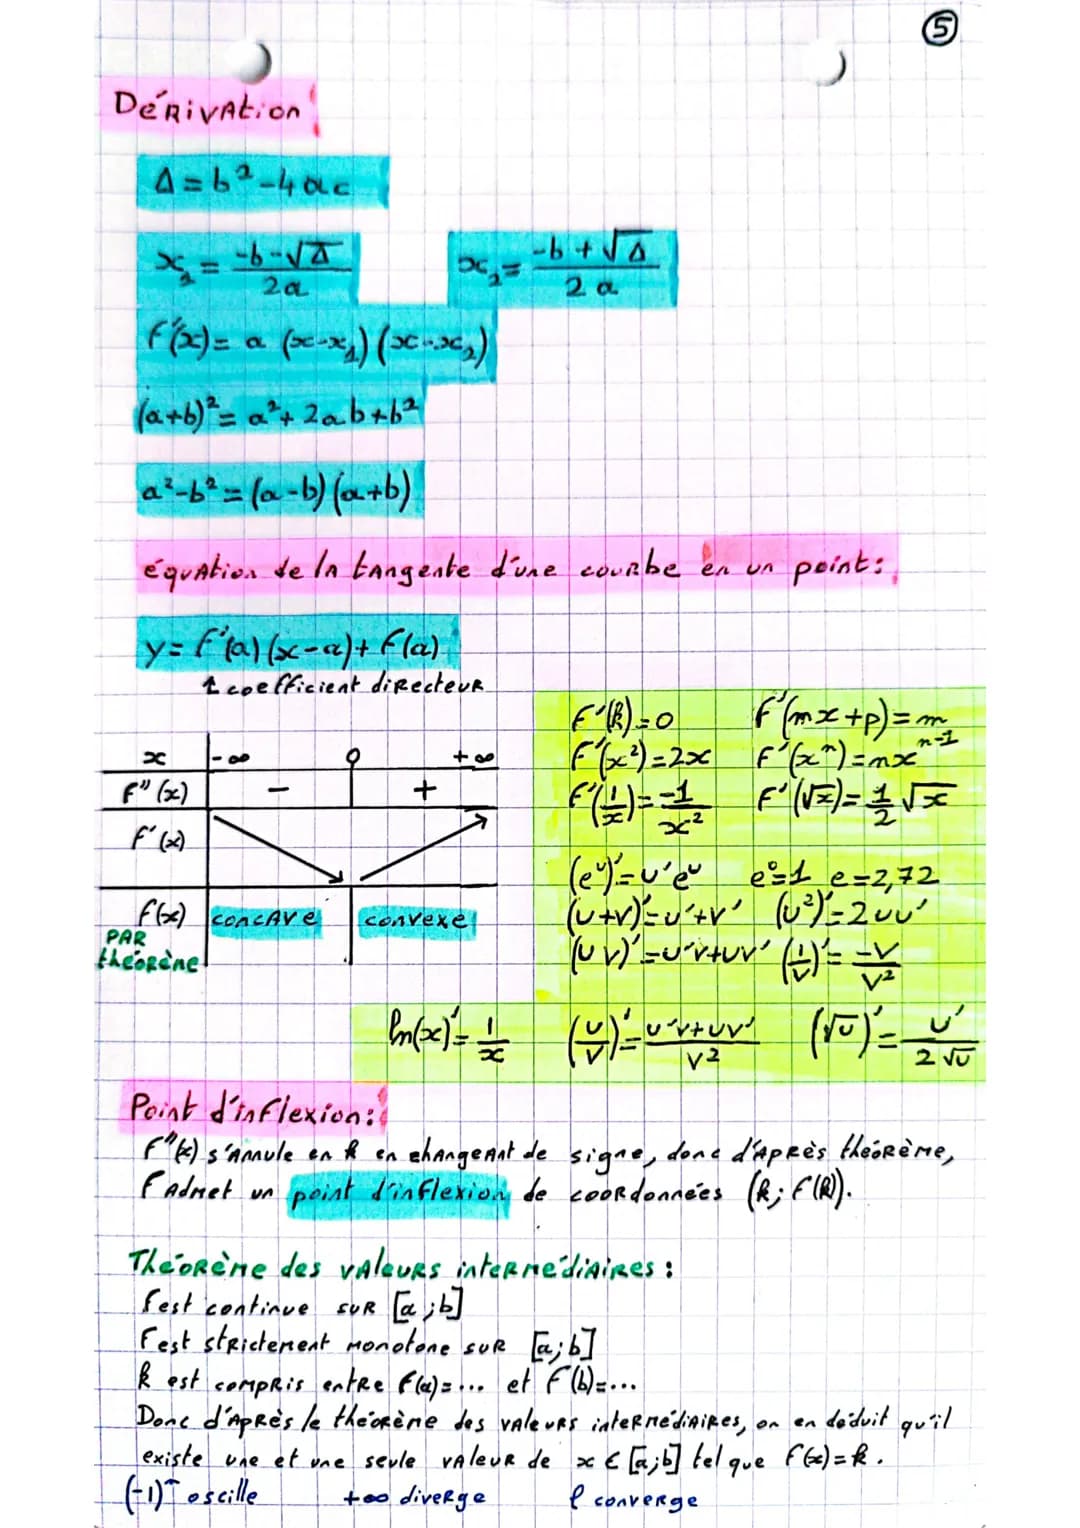 ⑤
Dérivation
Δ = b² - 4ac
x₂ = (-b-√Δ)/(2a)    x₂ = (-b+√Δ)/(2a)
f'(x) = a (x-x₁)(x-x₂)
(a+b)² = a² + 2ab + b²
a² - b² = (a-b)(a+b)
équation de la tangente d'une courbe en un point :
y = f'(a)(x-a) + f(a)
↑ coefficient directeur
f'(k) = 0    f'(mx+p) = m
f'(x²) = 2x    f'(xⁿ) = nxⁿ⁻¹
f'(1/x) = -1/x²    f'(√x) = 1/2 √x
x | -∞ 0 +∞
f''(x) | - +
f'(x) | ↘ ↗
f(x) | concave | convexe
PAR
théorène
(eᵘ)' = u'eᵘ    e⁰=1 e=2,72
(u+v)' = u'+v'    (u²)' = 2uu'
(uv)' = u'v+uv'    (1/v)' = -v/v²
ln(x)' = 1/x    (u/v)' = (u'v+uv')/v²    (√u)' = u'/(2√u)
Point d'inflexion :
f''(x) s'annule en k en changeant de signe, donc d'après théorème,
f admet un point d'inflexion de coordonnées (k; f(k)).
Théorème des valeurs intermédiaires :
f est continue sur [a;b]
f est strictement monotone sur [a;b]
k est compris entre f(a)=... et f(b)=...
Donc d'après le théorème des valeurs intermédiaires, on en déduit qu'il
existe une et une seule valeur de x ∈ [a;b] tel que f(x)=k.
(-1)ⁿ oscille    +∞ diverge    ℓ converge